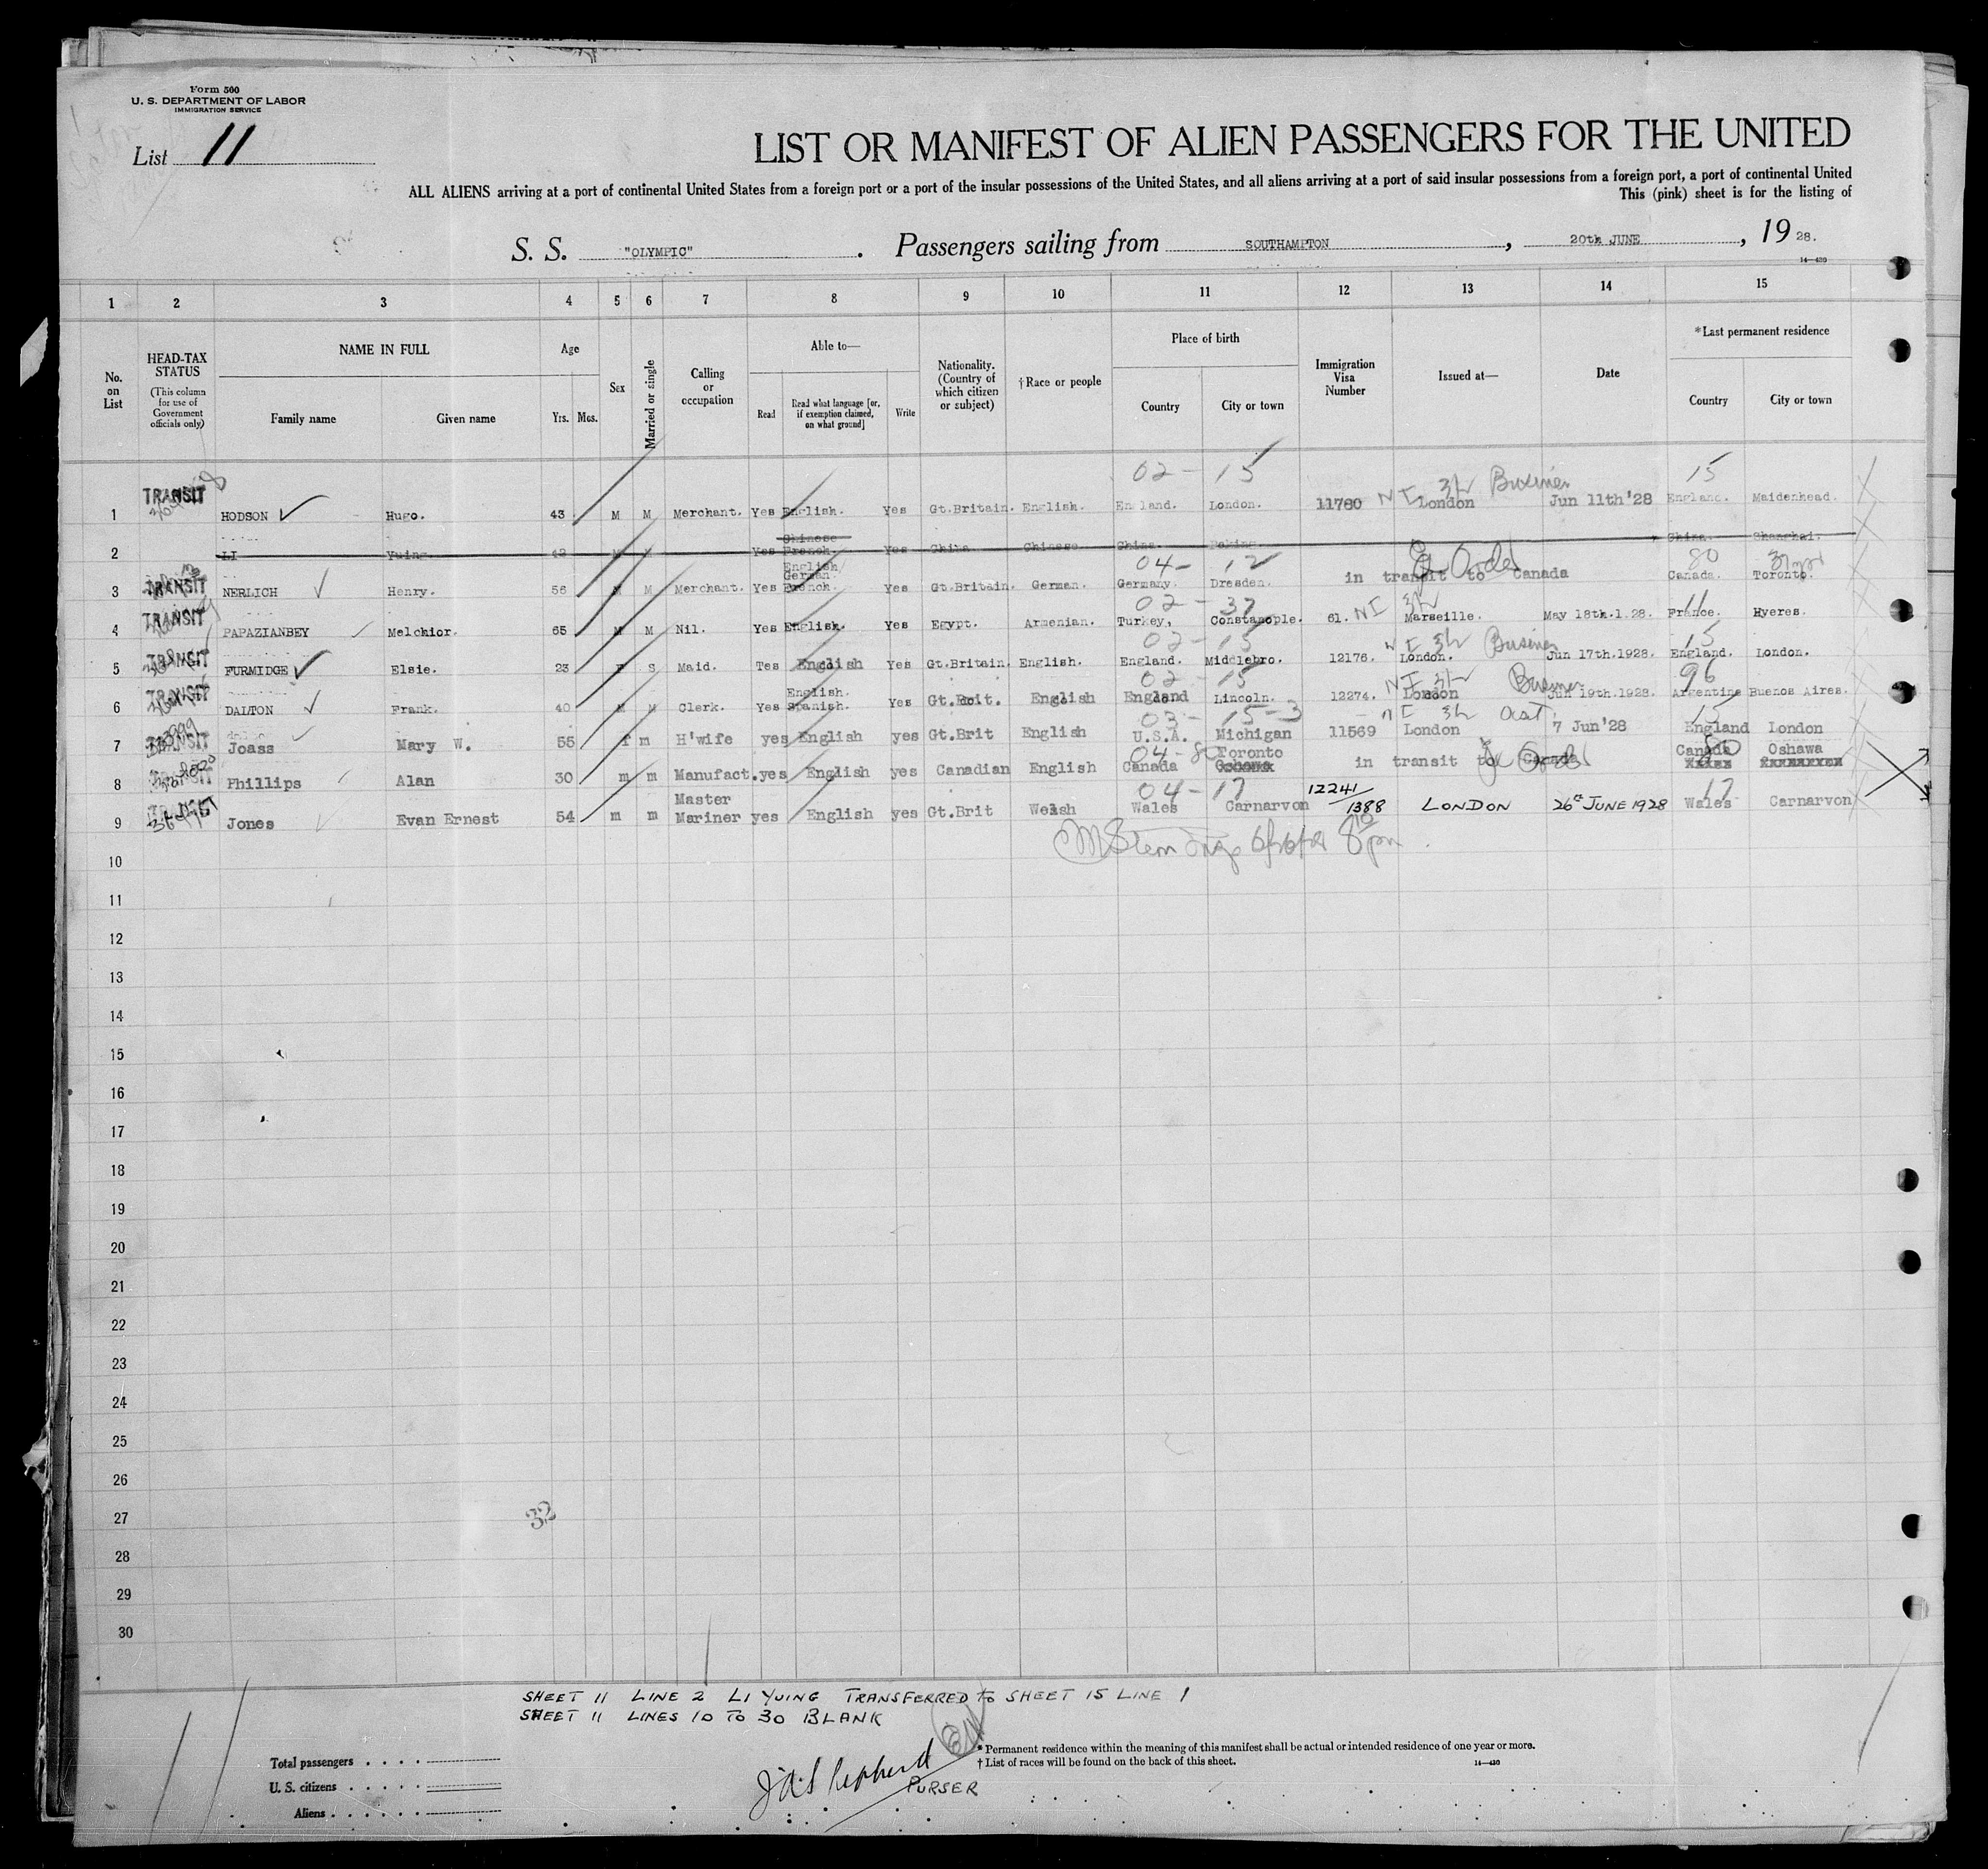 Form 500
U. S. DEPARTMENT OF LABOR
IMMIGRATION SERVICE
List 11
LIST OR MANIFEST OF ALIEN PASSENGERS FOR THE UNITED
ALL ALIENS arriving at a port of continental United States from a foreign port or a port of the insular possessions of the United States, and all aliens arriving at a port of said insular possessions from a foreign port, a port of continental United
This (pink) sheet is for the listing of
S. S. "OLYMPIC" . Passengers sailing from SOUTHAMPTON , 20th JUNE , 19 28.
14—430
1 2 3 4 5 6 7 8 9 10 11 12 13 14 15
No. on List
HEAD-TAX STATUS
(This column for use of Government officials only)
NAME IN FULL
Family name Given name
Age
Yrs. Mos.
Sex
Married or single
Calling or occupation
Able to—
Read
Read what language [or, if exemption claimed, on what ground]
Write
Nationality. (Country of which citizen or subject)
†Race or people
Place of birth
Country City or town
Immigration Visa Number
Issued at—
Date
*Last permanent residence
Country City or town
02 - 15 15
1 TRANSIT HODSON Hugo. 43 M M Merchant. Yes English. Yes Gt.Britain. English. England. London. 11780 NI London Jun 11th '28 England. Maidenhead.
2 LI Yuing. 42 Yes Chinese French. Yes China. Chinese China. China. Shanghai.
04 - 12 80
3 TRANSIT NERLICH Henry. 56 M M Merchant. Yes English German French. Yes Gt.Britain. German. Germany. Dresden. in transit to Canada Canada. Toronto.
02 - 37 11
4 TRANSIT PAPAZIANBEY Melchior. 65 M M Nil. Yes English. Yes Egypt. Armenian. Turkey, Constanople. 61. NI Marseille. May 18th.1.28. France. Hyeres.
02 - 15 15
5 TRANSIT FURMIDGE Elsie. 23 F S Maid. Tes English Yes Gt.Britain. English. England. Middlebro. 12176. London. Jun 17th.1928. England. London.
02 - 15 96
6 TRANSIT DALTON Frank. 40 M M Clerk. Yes English. Spanish. Yes Gt.Brit. English England Lincoln. 12274. NI London Jun 19th.1928. Argentine Buenos Aires.
03 - 15-3 15
7 TRANSIT Joass Mary W. 55 f m H'wife yes English yes Gt.Brit English U.S.A. Michigan 11569 London 7 Jun'28 England London
04 - 80
8 Phillips Alan 30 m m Manufact. yes English yes Canadian English Canada Toronto in transit to Canada Canada 80 Oshawa
04 - 17 17
9 Jones Evan Ernest 54 m m Master Mariner yes English yes Gt.Brit Welsh Wales Carnarvon 12241/1388 LONDON 26th JUNE 1928 Wales Carnarvon
10
11
12
13
14
15
16
17
18
19
20
21
22
23
24
25
26
27
28
29
30
32
SHEET 11 LINE 2 LI YUING TRANSFERRED TO SHEET 15 LINE 1
SHEET 11 LINES 10 TO 30 BLANK
Total passengers
U. S. citizens
Aliens
J A Shepherd
PURSER
* Permanent residence within the meaning of this manifest shall be actual or intended residence of one year or more.
† List of races will be found on the back of this sheet.
14—430